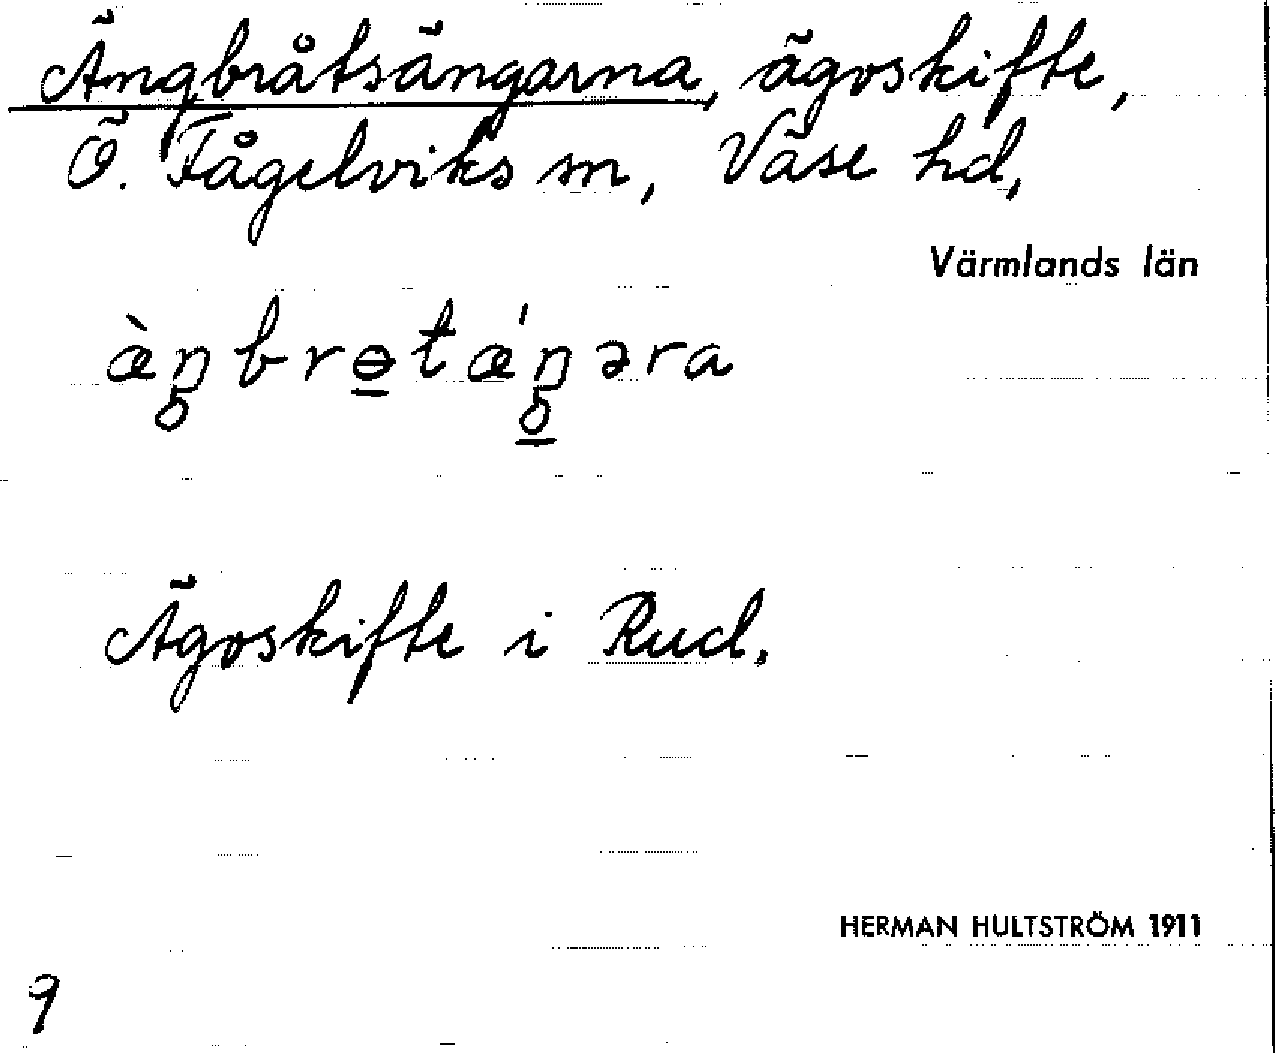 Ängbråtsängarna, ägoskifte,
Ö. Fågelviks sn, Väse hd,
Värmlands län
æ̀ŋbrɵ̲tǽŋ̲əra
Ägoskifte i Rud.
HERMAN HULTSTRÖM 1911
9